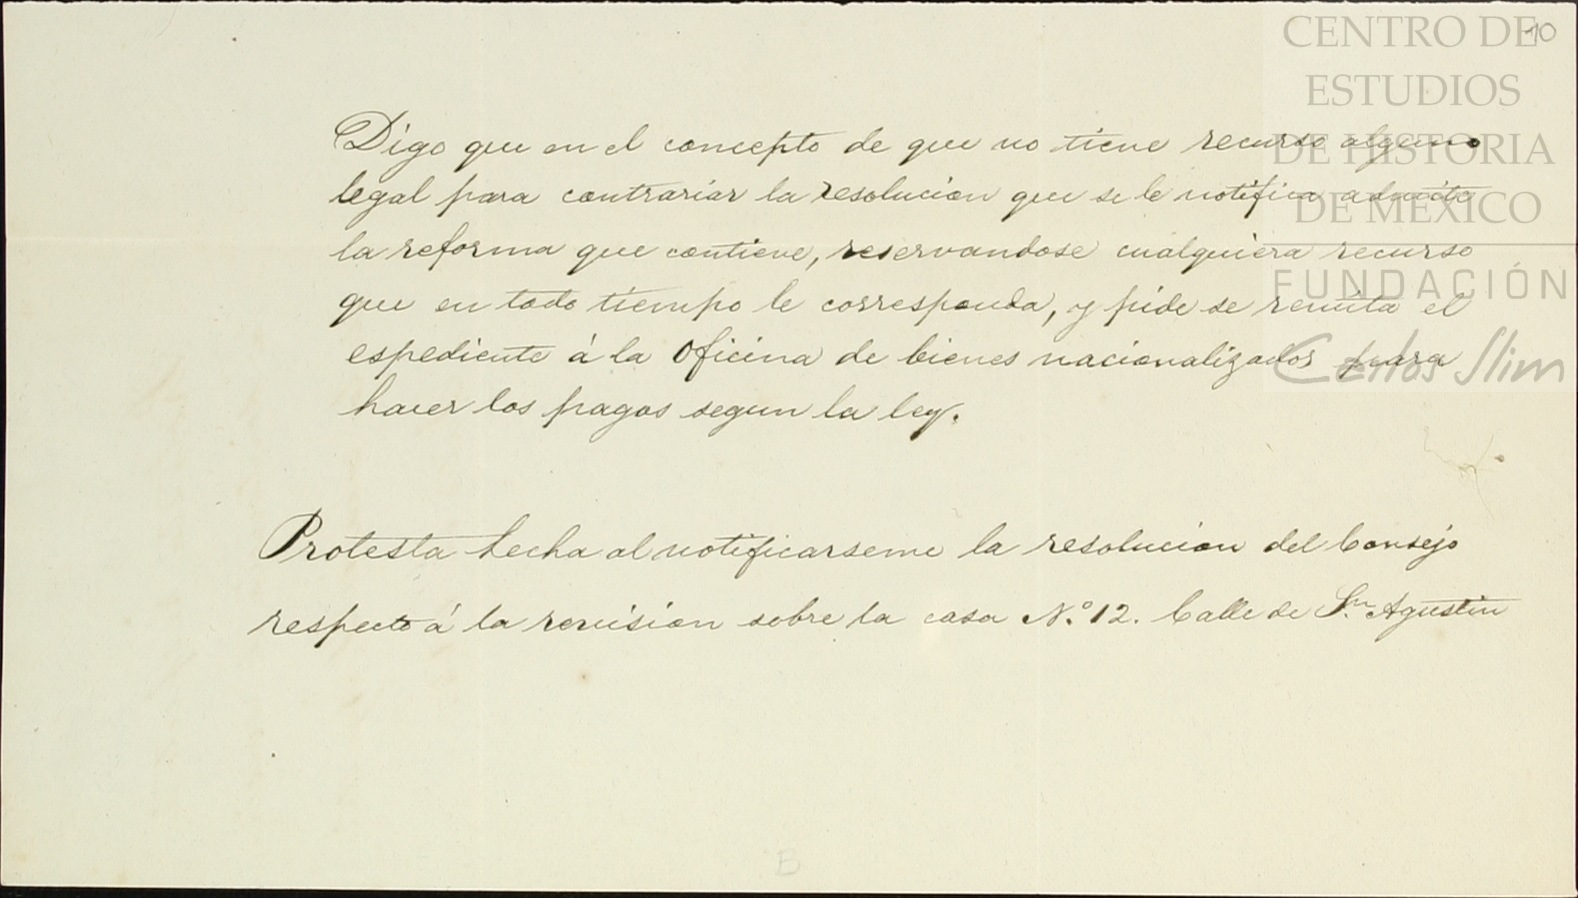 10
CENTRO DE
ESTUDIOS
DE HISTORIA
DE MEXICO
FUNDACIÓN
Carlos Slim
Digo que en el concepto de que no tiene recurso alguno
legal para contrariar la resolucion que se le notifica admite
la reforma que contiene, reservandose cualquiera recurso
que en todo tiempo le corresponda, y pide se remita el
espediente á la Oficina de bienes nacionalizados para
hacer los pagos segun la ley.
Protesta hecha al notificarseme la resolucion del Consejo
respecto á la revision sobre la casa N.º 12. Calle de Sn. Agustin
B